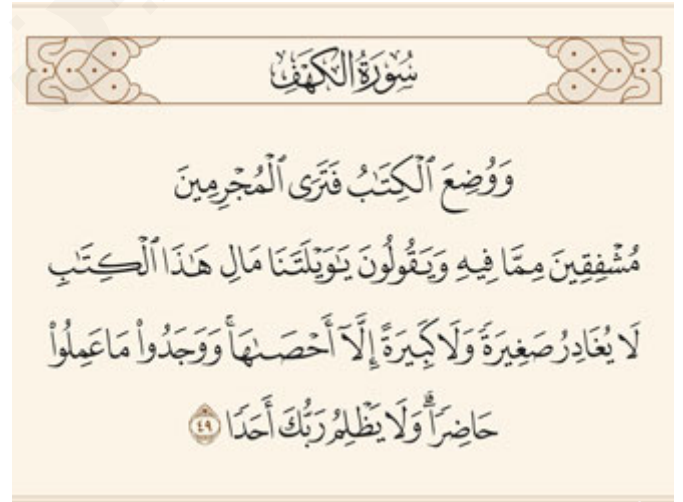 سُورَةُ الكَهْفِ
وَوُضِعَ ٱلْكِتَٰبُ فَتَرَى ٱلْمُجْرِمِينَ
مُشْفِقِينَ مِمَّا فِيهِ وَيَقُولُونَ يَٰوَيْلَتَنَا مَالِ هَٰذَا ٱلْكِتَٰبِ
لَا يُغَادِرُ صَغِيرَةً وَلَا كَبِيرَةً إِلَّآ أَحْصَىٰهَا ۚ وَوَجَدُوا۟ مَا عَمِلُوا۟
حَاضِرًا ۗ وَلَا يَظْلِمُ رَبُّكَ أَحَدًا ٤٩